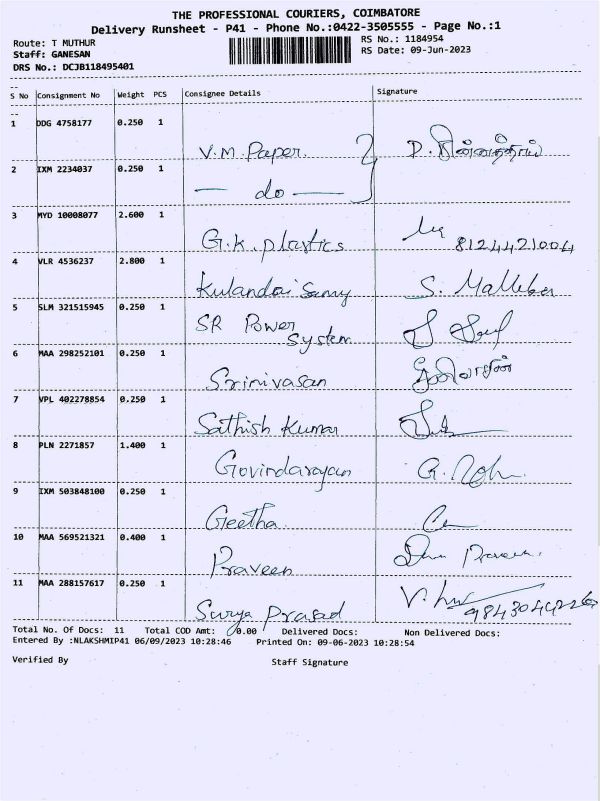 THE PROFESSIONAL COURIERS, COIMBATORE
Delivery Runsheet - P41 - Phone No.:0422-3505555 - Page No.:1
Route: T MUTHUR RS No.: 1184954
Staff: GANESAN RS Date: 09-Jun-2023
DRS No.: DCJB118495401
S No Consignment No Weight PCS Consignee Details Signature
1 DDG 4758177 0.250 1
V.M. Paper. D.
2 IXM 2234037 0.250 1
— do —
3 MYD 10008077 2.600 1
G.K. plastics 8124421004
4 VLR 4536237 2.800 1
Kulandai Samy S.
5 SLM 321515945 0.250 1
SR Power
System
6 MAA 298252101 0.250 1
Srinivasan ஸ்ரீனிவாசன்
7 VPL 402278854 0.250 1
Sathish Kumar
8 PLN 2271857 1.400 1
Govindarayan
9 IXM 503848100 0.250 1
Geetha
10 MAA 569521321 0.400 1
Praveen
11 MAA 288157617 0.250 1
Surya Prasad V.
Total No. Of Docs: 11 Total COD Amt: 0.00 Delivered Docs: Non Delivered Docs:
Entered By :NLAKSHMIP41 06/09/2023 10:28:46 Printed On: 09-06-2023 10:28:54
Verified By Staff Signature